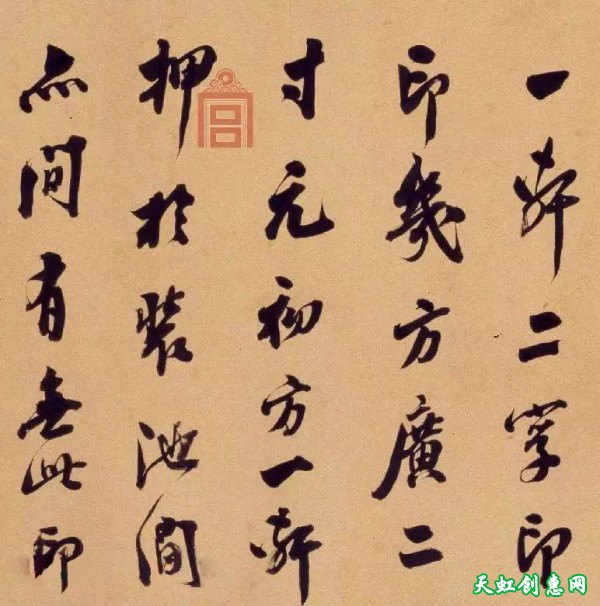 一軒二字印
印幾方廣二
寸元初方一軒
押於裝池間
亦間有無此印
天虹创惠网